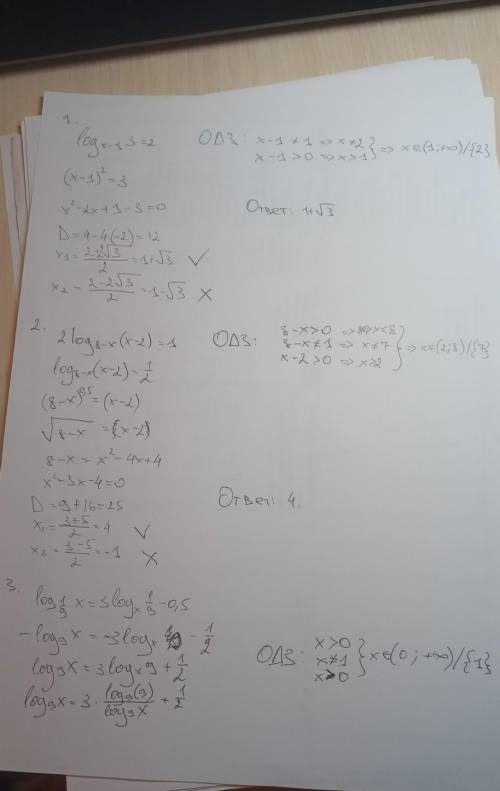 1.
log_{x-1} 3 = 2   ОДЗ: x-1≠1 => x≠2
x-1>0 => x>1 } => x∈(1;+∞)/{2}
(x-1)² = 3
x²-2x+1-3=0   Ответ: 1+√3
D=4-4·(-2)=12
= 1+√3 ✓
x₂ = (2-2√3)/2 = 1-√3 ✗
2.
2log_{8-x}(x-2)=1   ОДЗ: 8-x>0 => x<8
8-x≠1 => x≠7
log_{8-x}(x-2)=1/2   x-2>0 => x>2 } => x∈(2;8)/{7}
(8-x)^{0,5}=(x-2)
√(8-x) = (x-2)
8-x = x²-4x+4
x²-3x-4=0
D=9+16=25   Ответ: 4.
x₁ = (3+5)/2 = 4 ✓
x₂ = (3-5)/2 = -1 ✗
3.
log_{1/9} x = 3log_x 1/9 - 0,5
-log₉x = -3log_x 9 - 1/2   ОДЗ: x>0
log₉x = 3log_x 9 + 1/2   x≠1
x>0 } x∈(0;+∞)/{1}
log₉x = 3 · log₉(9)/log₉x + 1/2